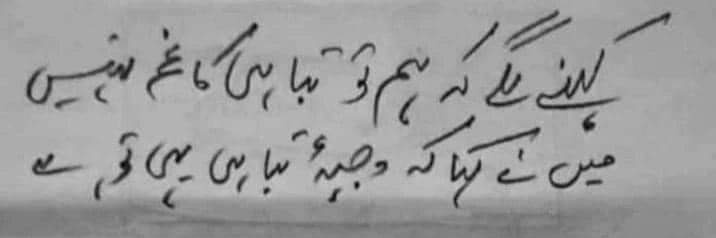 کہنے لگے کہ ہم تو تباہی کا غم نہیں
میں نے کہا کہ وجۂِ تباہی یہی تو ہے